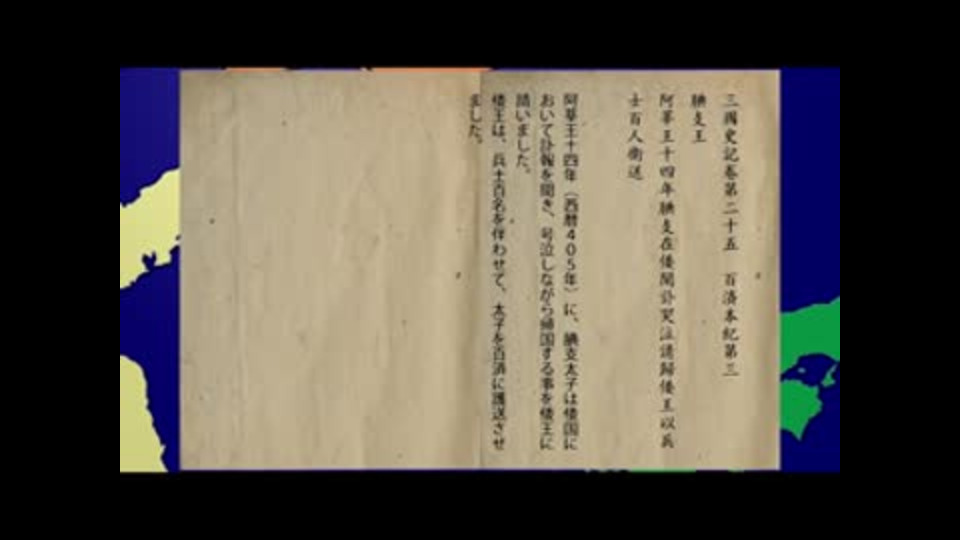 三國史記巻第二十五　百済本紀第三
腆支王
阿莘王十四年腆支在倭聞訃哭泣請歸倭王以兵
士百人衛送
阿莘王十四年（西暦４０５年）に、腆支太子は倭国に
おいて訃報を聞き、号泣しながら帰国する事を倭王に
請いました。
倭王は、兵士百名を伴わせて、太子を百済に護送させ
ました。